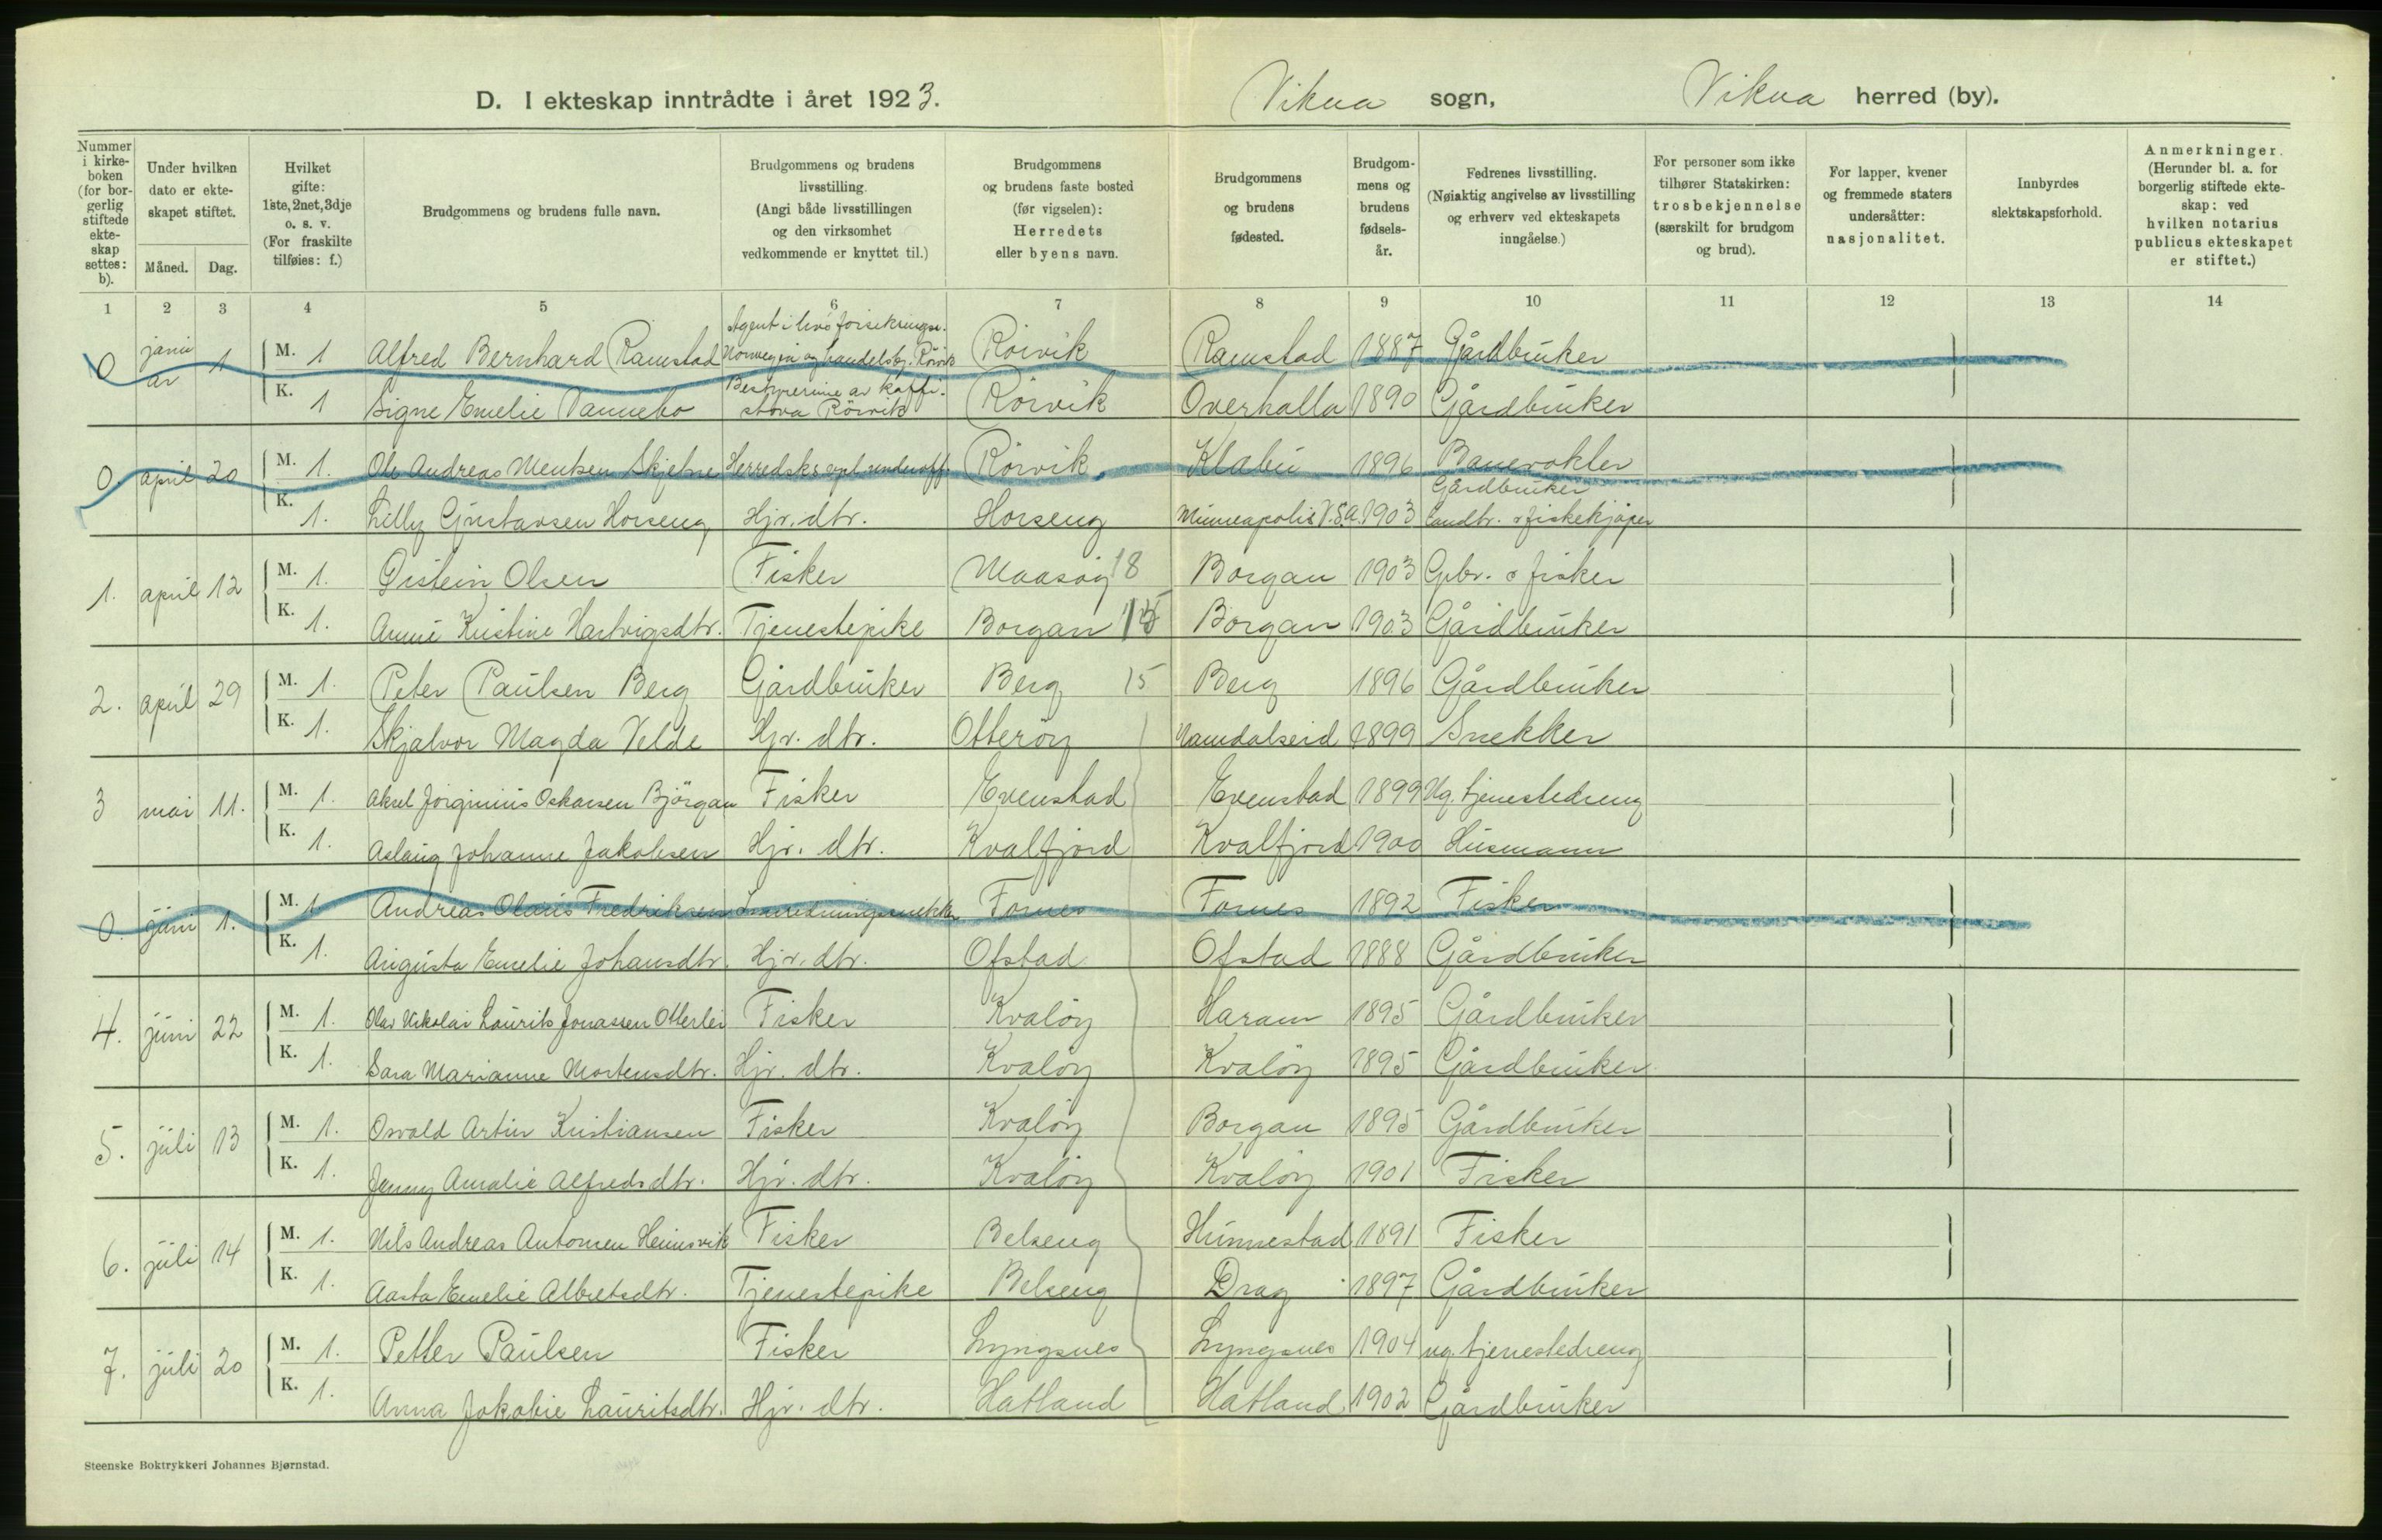 D. I ekteskap inntrådte i året 1923.
Vikna sogn, Vikna herred (by).
Nummer i kirke-boken (for bor-gerlig stiftede ekte-skap settes: b).
Under hvilken dato er ekte-skapet stiftet.
Måned. Dag.
Hvilket gifte: 1ste, 2net, 3dje o. s. v. (For fraskilte tilføies: f.)
Brudgommens og brudens fulle navn.
Brudgommens og brudens livsstilling. (Angi både livsstillingen og den virksomhet vedkommende er knyttet til.)
Brudgommens og brudens faste bosted (før vigselen): Herredets eller byens navn.
Brudgommens og brudens fødested.
Brudgom-mens og brudens fødsels-år.
Fedrenes livsstilling. (Nøiaktig angivelse av livsstilling og erhverv ved ekteskapets inngåelse.)
For personer som ikke tilhører Statskirken: trosbekjennelse (særskilt for brudgom og brud).
For lapper, kvener og fremmede staters undersåtter: nasjonalitet.
Innbyrdes slektskapsforhold.
Anmerkninger. (Herunder bl. a. for borgerlig stiftede ekte-skap: ved hvilken notarius publicus ekteskapet er stiftet.)
1 2 3 4 5 6 7 8 9 10 11 12 13 14
0 januar 1 M. 1 Alfred Bernhard Ramstad Agent i livsforsikringss. Norvegia og handelsbj. Rörvik Rörvik Ramstad 1887 Gårdbruker
K. 1 Signe Emelie Vannebo Bestyrerinne av kaffi-stova Rörvik Rörvik Overhalla 1890 Gårdbruker
0. april 20 M. 1. Ole Andreas Mentsen Skjelne Rörvik Klæbu 1896 Banevokter
K. 1. Lilly Gustavsen Horseng Hjv. dtr. Horseng Minneapolis U.S.A. 1903 Gårdbruker Landh. & fiskekjöper
1. april 12 M. 1. Øistein Olsen Fisker Maasöy 18 Borgan 1903 Gbr. & fisker
K. 1. Anne Kristine Hartvigsdtr. Tjenestepike Borgan 15 Borgan 1903 Gårdbruker
2. april 29 M. 1. Peter Paulsen Berg Gårdbruker Berg 15 Berg 1896 Gårdbruker
K. 1. Skjalvor Magda Velde Hjv. dtr. Otteröy Namdalseid 1899 Snekker
3 mai 11. M. 1. Aksel Jörginius Oskarsen Björgan Fisker Evenstad Evenstad 1899 Ug. tjenestedreng
K. 1. Aslaug Johanne Jakobsen Hjv. dtr. Kvalfjord Kvalfjord 1900 Husmann
0. juni 1. M. 1. Andreas Olaus Fredriksen Innredningssnekker Fornes Fornes 1892 Fisker
K. 1. Augusta Emelie Johansdtr. Hjv. dtr. Ofstad Ofstad 1888 Gårdbruker
4. juni 22 M. 1. Olav Nikolai Laurits Jonassen Otterlei Fisker Kvalöy Haram 1895 Gårdbruker
K. 1. Sara Marianne Mortensdtr. Hjv. dtr. Kvalöy Kvalöy 1895 Gårdbruker
5. juli 13 M. 1. Osvald Artur Kristiansen Fisker Kvalöy Borgan 1895 Gårdbruker
K. 1. Jenny Amalie Alfredsdtr. Hjv. dtr. Kvalöy Kvalöy 1901 Fisker
6. juli 14 M. 1. Nils Andreas Antonsen Heimsvik Fisker Belseng Hunnestad 1891 Fisker
K. 1. Aasta Emelie Albretsdtr. Tjenestepike Belseng Drag 1897 Gårdbruker
7. juli 20 M. 1. Petter Paulsen Fisker Lyngsnes Lyngsnes 1904 ug. tjenestedreng
K. 1. Anna Jakobie Lauritsdtr. Hjv. dtr. Hatland Hatland 1902 Gårdbruker
Steenske Boktrykkeri Johannes Bjørnstad.